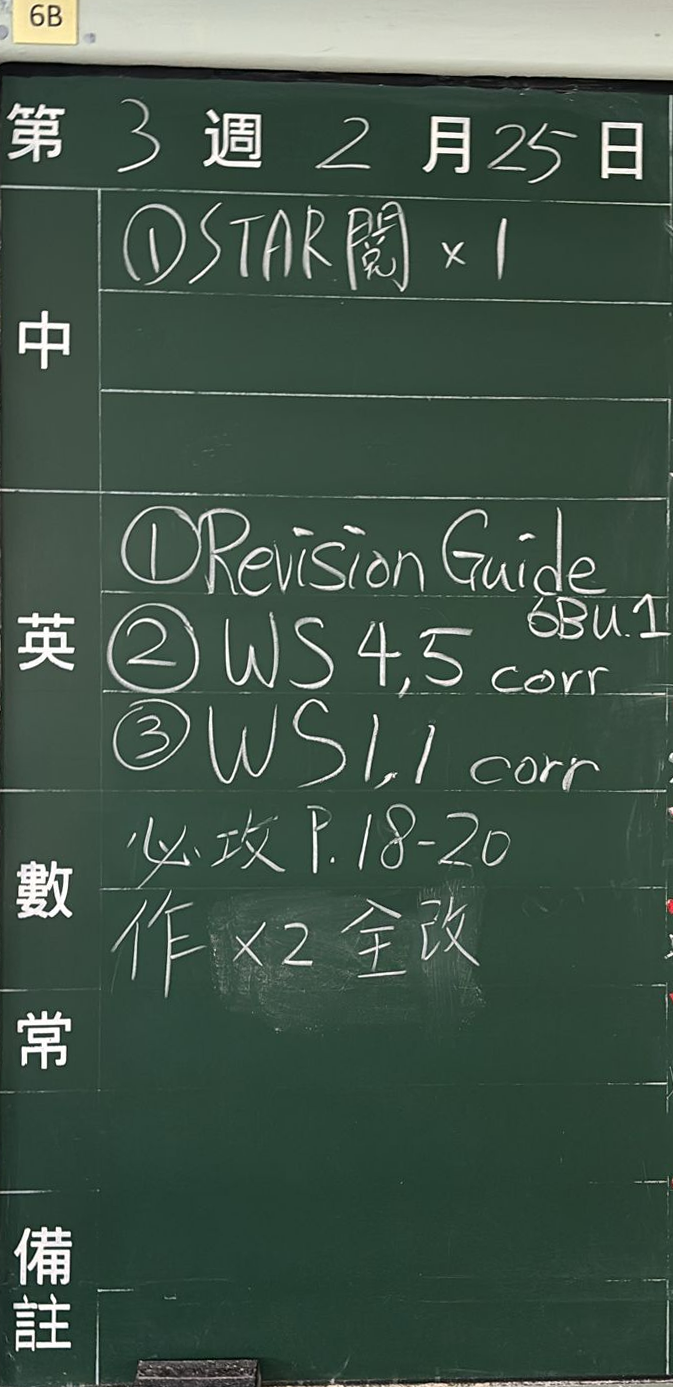 6B
第 3 週 2 月 25 日
中
①STAR閱 x 1
英
①Revision Guide
6BU.1
②WS 4,5 corr
③WS1,1 corr
數
必攻 P.18-20
作 x2 全改
常
備註